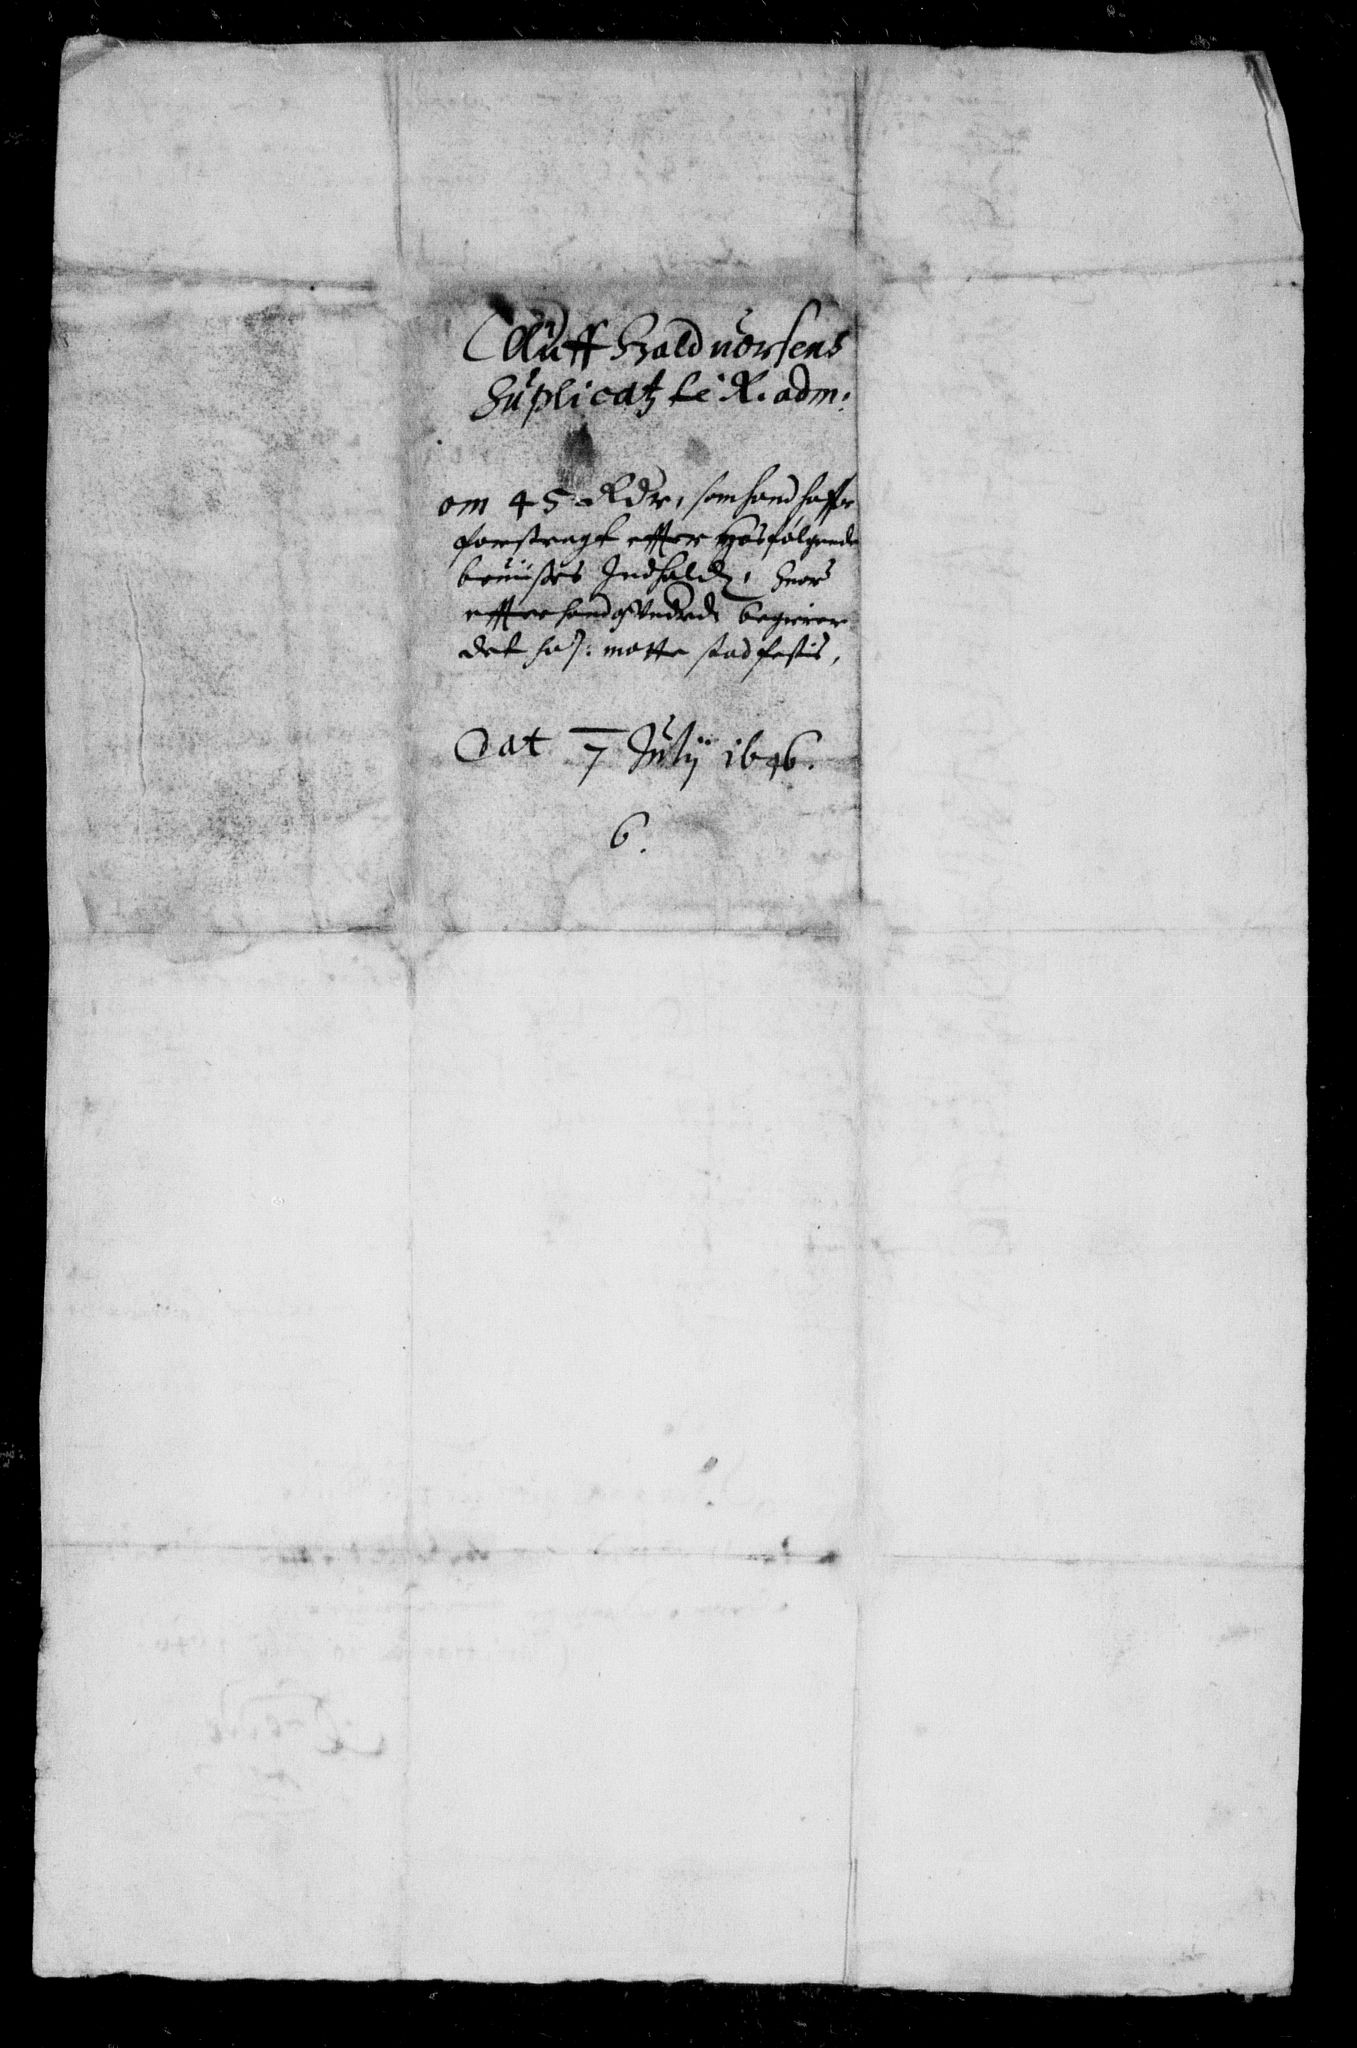 Oluff Halduorsens
Suplicatz te R. adm:
om 45 Rdr, som hand haffr
forstragt effter Hosfølgende
beuiises Indhaldz, huor
effter hand begierer
det ha: motte stadfestis,
Dat 7 Julij 1646.
6.